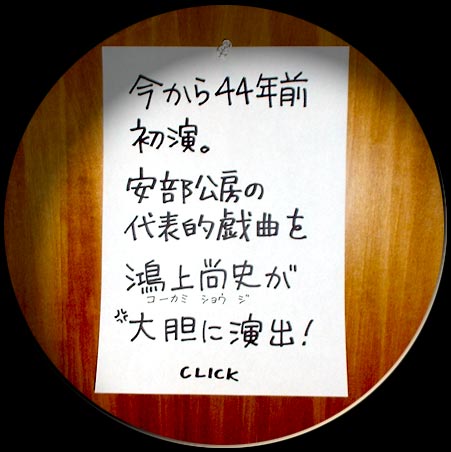 今から44年前
初演。
安部公房の
代表的戯曲を
鴻上尚史が
コーカミ ショウ ジ
大胆に演出!
CLICK